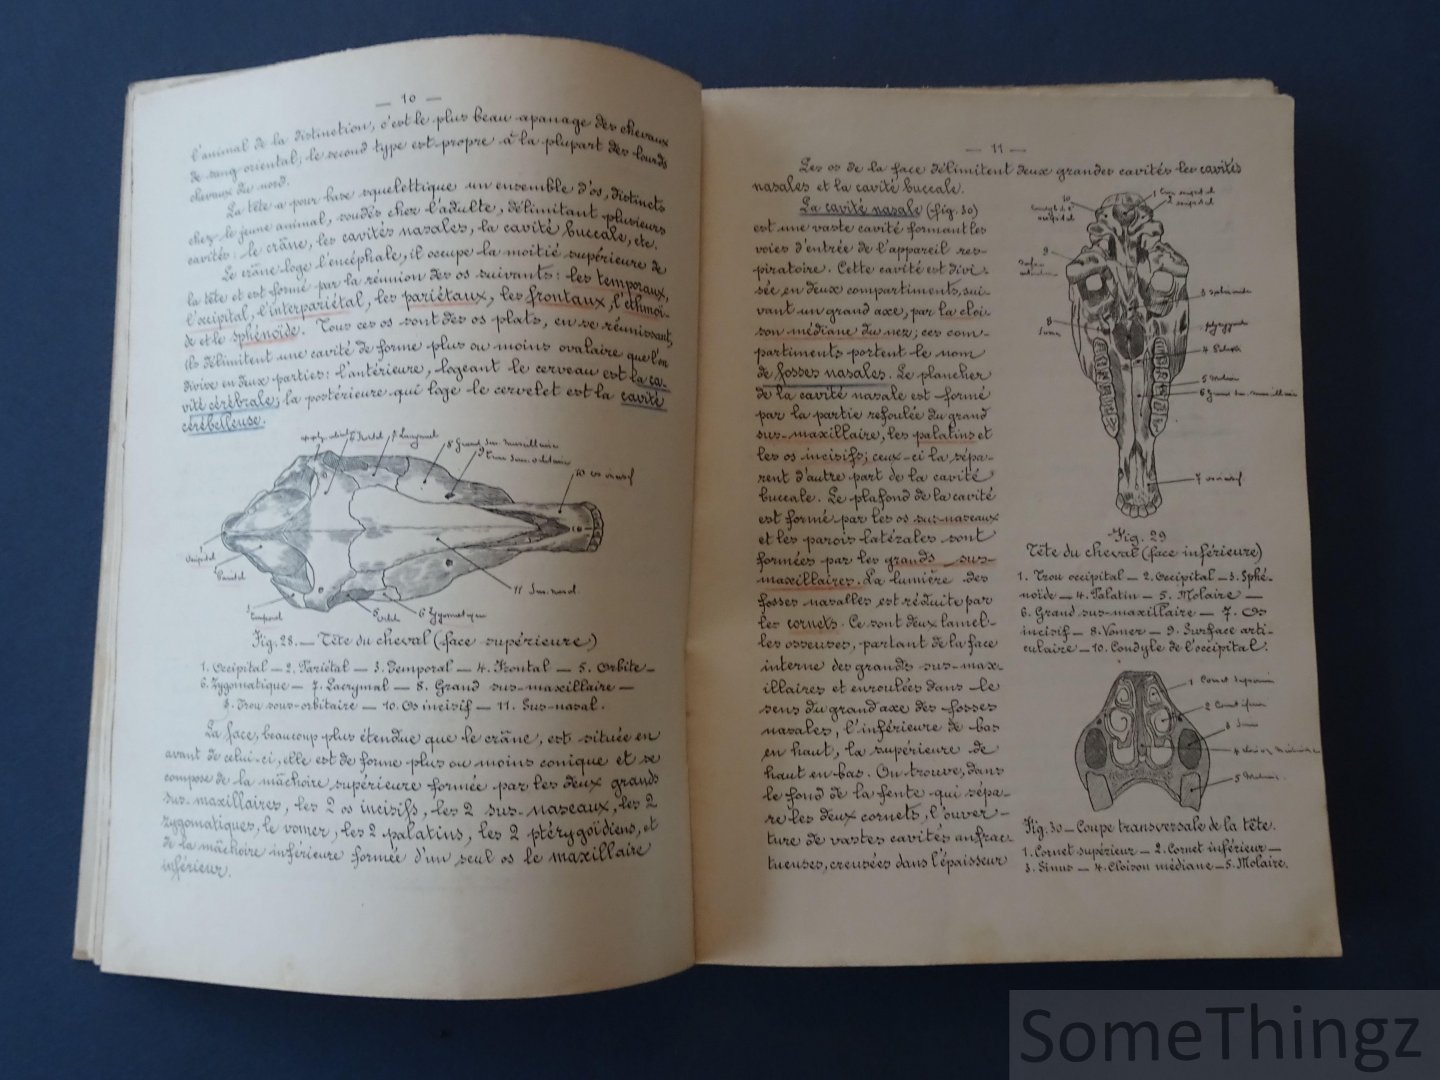 — 10 —
l'animal de la distinction, c'est le plus beau apanage des chevaux
de sang oriental; le second type est propre à la plupart des lourds
chevaux du nord.
La tête a pour base squelettique un ensemble d'os, distincts
chez le jeune animal, soudés chez l'adulte, délimitant plusieurs
cavités: le crâne, les cavités nasales, la cavité buccale, etc.
Le crâne loge l'encéphale, il occupe la moitié supérieure de
la tête et est formé par la réunion des os suivants: les temporaux,
l'occipital, l'interpariétal, les pariétaux, les frontaux, l'ethmoï-
de et le sphénoïde. Tous ces os sont des os plats, en se réunissant,
ils délimitent une cavité de forme plus ou moins ovalaire que l'on
divise en deux parties: l'antérieure, logeant le cerveau est la ca-
vité cérébrale; la postérieure qui loge le cervelet est la cavité
cérébelleuse.
8 Grand sus-maxillaire
10 os incisif
occipital
Pariétal
3
temporal
5
6 Zygomatique
11 Sus-nasal
Fig. 28. — Tête du cheval (face supérieure)
1. Occipital — 2. Pariétal — 3. Temporal — 4. Frontal — 5. Orbite —
6. Zygomatique — 7. Lacrymal — 8. Grand sus-maxillaire —
9. Trou sous-orbitaire — 10. Os incisif — 11. Sus-nasal.
La face, beaucoup plus étendue que le crâne, est située en
avant de celui-ci, elle est de forme plus ou moins conique et se
compose de la mâchoire supérieure formée par les deux grands
sus-maxillaires, les 2 os incisifs, les 2 sus-naseaux, les 2
zygomatiques, le vomer, les 2 palatins, les 2 ptérygoïdiens, et
de la mâchoire inférieure formée d'un seul os le maxillaire
inférieur.
— 11 —
Les os de la face délimitent deux grandes cavités les cavités
nasales et la cavité buccale.
La cavité nasale (fig. 30)
est une vaste cavité formant les
voies d'entrée de l'appareil res-
piratoire. Cette cavité est divi-
sée en deux compartiments, sui-
vant un grand axe, par la cloi-
son médiane du nez; ces com-
partiments portent le nom
de fosses nasales. Le plancher
de la cavité nasale est formé
par la partie refoulée du grand
sus-maxillaire, les palatins et
les os incisifs; ceux-ci la sépa-
rent d'autre part de la cavité
buccale. Le plafond de la cavité
est formé par les os sus-naseaux
et les parois latérales sont
formées par les grands sus-
maxillaires. La lumière des
fosses nasalles est réduite par
les cornets. Ce sont deux lamel-
les osseuses, partant de la face
interne des grands sus-max-
illaires et enroulées dans le
sens du grand axe des fosses
nasales, l'inférieure de bas
en haut, la supérieure de
haut en bas. On trouve, dans
le fond de la fente qui sépa-
re les deux cornets, l'ouver-
ture de vastes cavités anfrac-
tueuses, creusées dans l'épaisseur
10
9
8
4 Palatin
5 Molaire
6 Grand sus-maxillaire
7 os incisif
Fig. 29
Tête du cheval (face inférieure)
1. Trou occipital — 2. Occipital — 3. Sphé-
noïde — 4. Palatin — 5. Molaire —
6. Grand sus-maxillaire — 7. Os
incisif — 8. Vomer — 9. Surface arti-
culaire — 10. Condyle de l'occipital.
1 Cornet supérieur
2 Cornet inférieur
3 Sinus
4 Cloison médiane
5 Molaire
Fig. 30 — Coupe transversale de la tête.
1. Cornet supérieur — 2. Cornet inférieur —
3. Sinus — 4. Cloison médiane — 5. Molaire.
SomeThingz